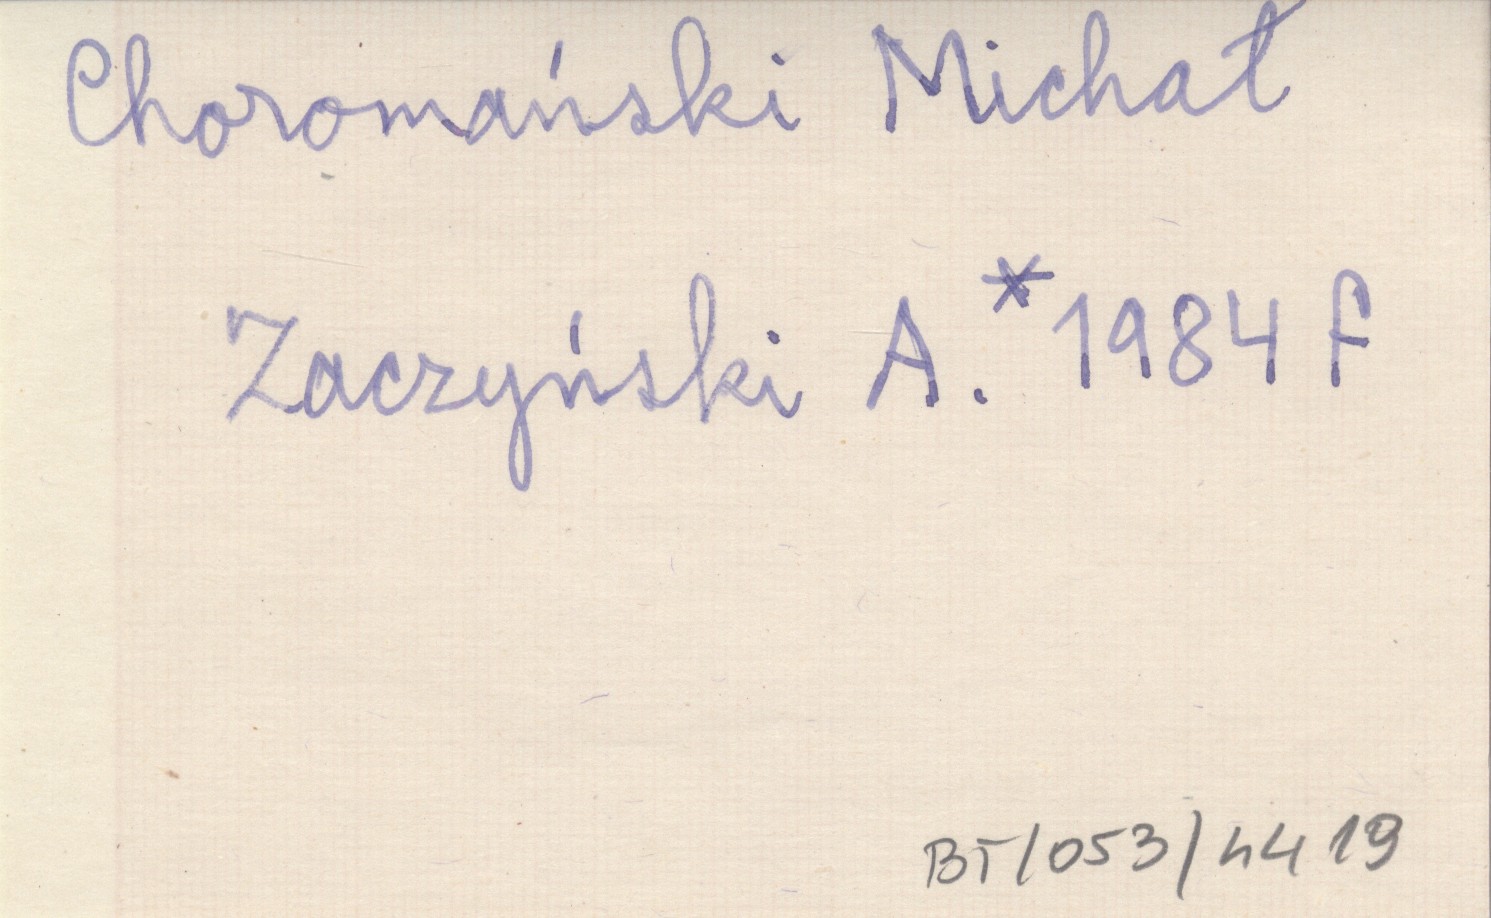 Choromański Michał
Zaczyński A.*1984 f
BT/053/4419